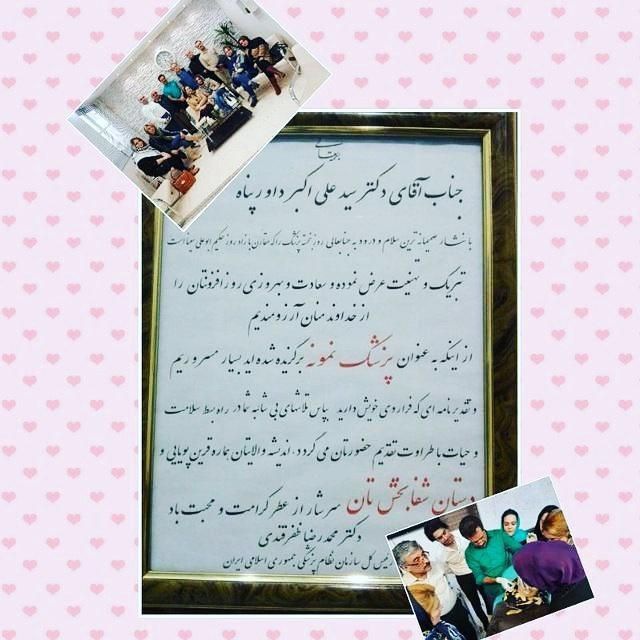 جناب آقای دکتر سید علی اکبر داورپناه
با نثار صمیمانه ترین سلام و درود به جنابعالی روز خجسته پزشک را که مقارن با زادروز حکیم ابوعلی سیناست
تبریک و تهنیت عرض نموده و سعادت و بهروزی روزافزونتان را
از خداوند منان آرزومندیم
از اینکه به عنوان پزشک نمونه برگزیده شده اید بسیار مسروریم
و تقدیرنامه ای که فراروی خویش دارید بپاس تلاشهای بی شائبه شما در راه بسط سلامت
و حیات با طراوت تقدیم حضورتان می گردد، اندیشه والایتان هماره قرین پویایی و
دستان شفابخش تان سرشار از عطر کرامت و محبت باد
دکتر محمدرضا ظفرقندی
رییس کل سازمان نظام پزشکی جمهوری اسلامی ایران